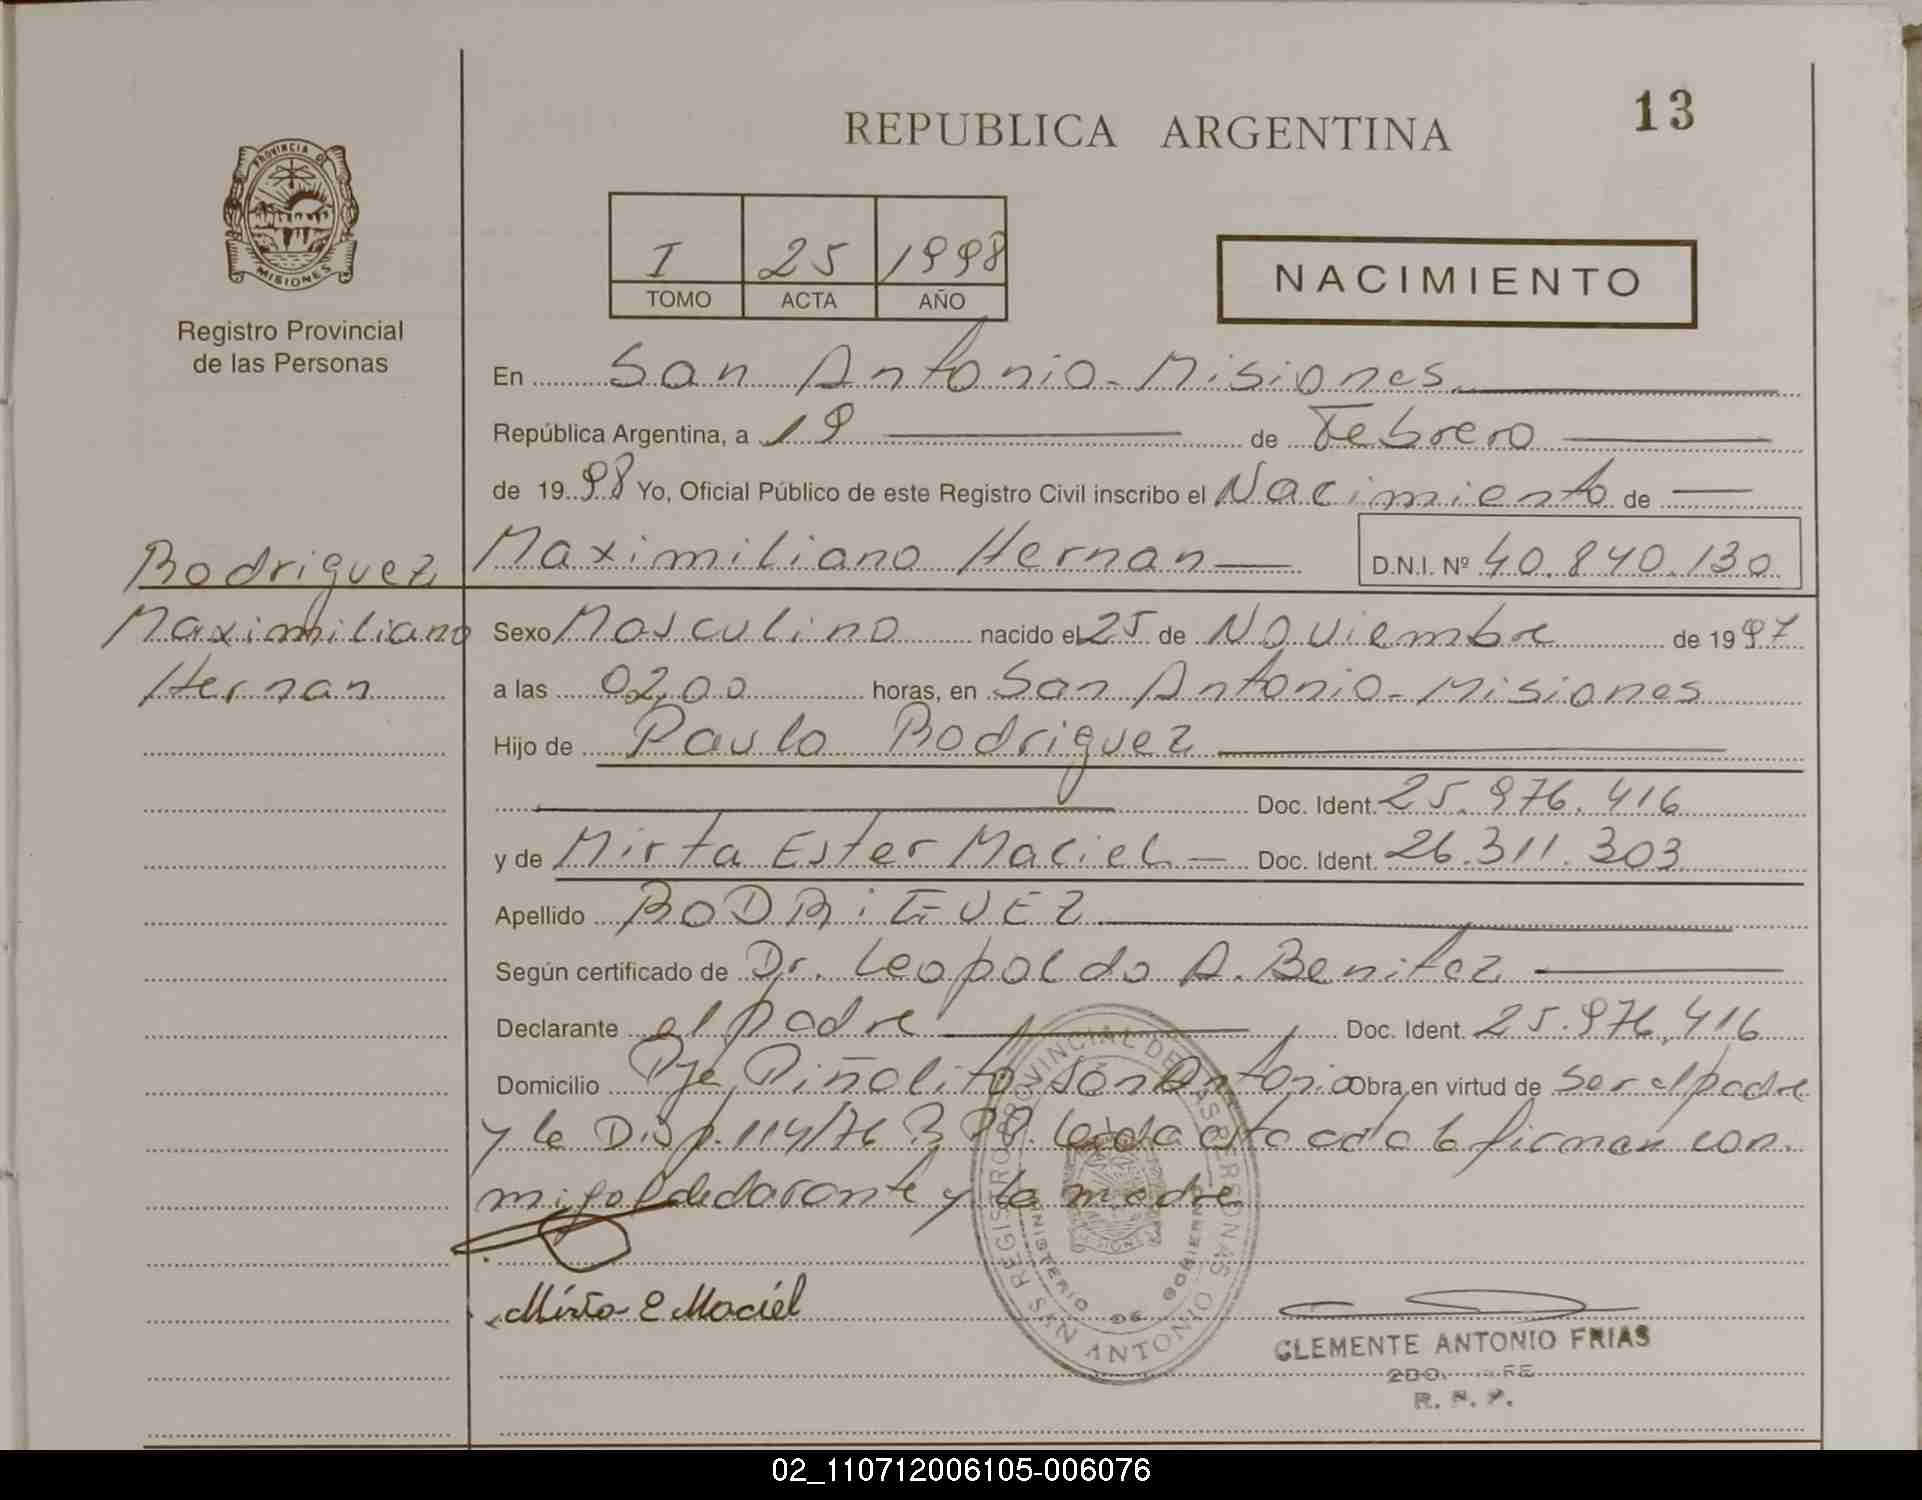 REPUBLICA ARGENTINA
13
PROVINCIA DE
MISIONES
Registro Provincial
de las Personas
I 25 1998
TOMO ACTA AÑO
NACIMIENTO
En San Antonio - Misiones
República Argentina, a 19 de Febrero
de 1998 Yo, Oficial Público de este Registro Civil inscribo el Nacimiento de
Rodriguez Maximiliano Hernan D.N.I. Nº 40.840.130
Maximiliano Sexo Masculino nacido el 25 de Noviembre de 1997
Hernan a las 02,00 horas, en San Antonio - Misiones
Hijo de Paulo Rodriguez
Doc. Ident. 25.976.416
y de Mirta Ester Maciel Doc. Ident. 26.311.303
Apellido RODRiGUEZ
Según certificado de Dr. Leopoldo A. Benitez
Declarante el padre Doc. Ident. 25.976.416
Domicilio Pje Piñalito San Antonio Obra en virtud de ser el padre
y la Disp. 114/76 R.P.P. Leida esta acta la firman con
migo el declarante y la madre
Mirta E Maciel
REGISTRO PROVINCIAL DE LAS PERSONAS
MINISTERIO DE GOBIERNO
MISIONES
SAN ANTONIO
CLEMENTE ANTONIO FRIAS
2DO. JEFE
R. P. P.
02_110712006105-006076